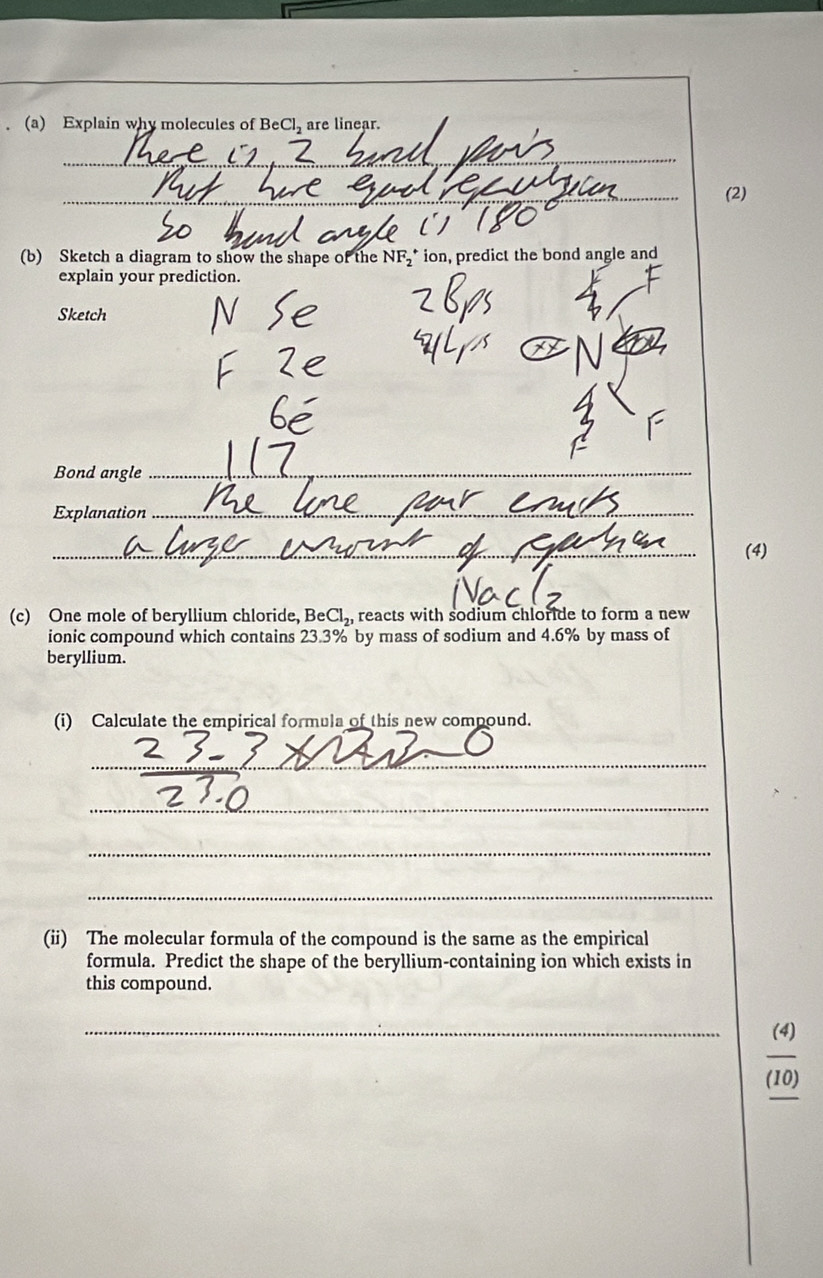 . (a) Explain why molecules of BeCl₂ are linear.
There is 2 bond pairs
that have equal repulsion
(2)
so bond angle is 180°
(b) Sketch a diagram to show the shape of the NF₂⁺ ion, predict the bond angle and
explain your prediction.
Sketch
N 5e
F 2e
6e
2 Bps
F
xx N
F
Bond angle 117
Explanation The lone pair
a larger amount of repulsion
(4)
NaCl₂
(c) One mole of beryllium chloride, BeCl₂, reacts with sodium chloride to form a new
ionic compound which contains 23.3% by mass of sodium and 4.6% by mass of
beryllium.
(i) Calculate the empirical formula of this new compound.
23.3
23.0
(ii) The molecular formula of the compound is the same as the empirical
formula. Predict the shape of the beryllium-containing ion which exists in
this compound.
(4)
(10)